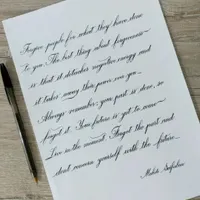 Forgive people for what they have done
to you. The best thing about forgiveness
is that it detaches negative energy and
it takes away their power over you.
Always remember, your past is done, so
forget it. Your future is yet to come
Live in the moment. Forget the past and
don't concern yourself with the future.